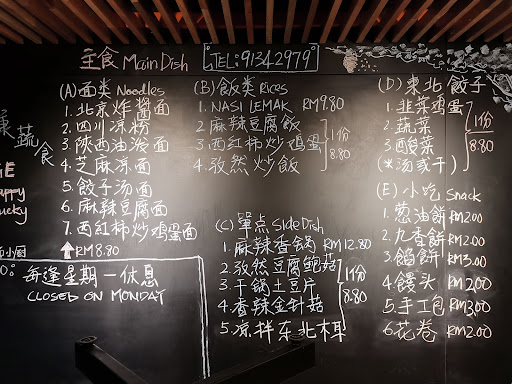 主食 Main Dish TEL: 9134 2979
(A) 面类 Noodles
1. 北京炸酱面
2. 四川凉粉
3. 陕西油泼面
4. 芝麻凉面
5. 餃子汤面
6. 麻辣豆腐面
7. 西红柿炒鸡蛋面
RM 8.80
(B) 飯类 Rices
1. NASI LEMAK RM 9.80
2. 麻辣豆腐飯
3. 西红柿炒鸡蛋
4. 孜然炒飯
1份
8.80
(C) 單点 Side Dish
1. 麻辣香锅 RM 12.80
2. 孜然豆腐鲍菇
3. 干锅土豆片
4. 香辣金针菇
5. 凉拌东北木耳
1份
8.80
(D) 東北餃子
1. 韭菜鸡蛋
2. 蔬菜
3. 酸菜
1份
8.80
(*汤或干)
(E) 小吃 Snack
1. 葱油餅 RM 2.00
2. 九香餅 RM 2.00
3. 餡餅 RM 3.00
4. 馒头 RM 2.00
5. 手工包 RM 3.00
6. 花卷 RM 2.00
蔬食
小厨
每逢星期一休息
CLOSED ON MONDAY